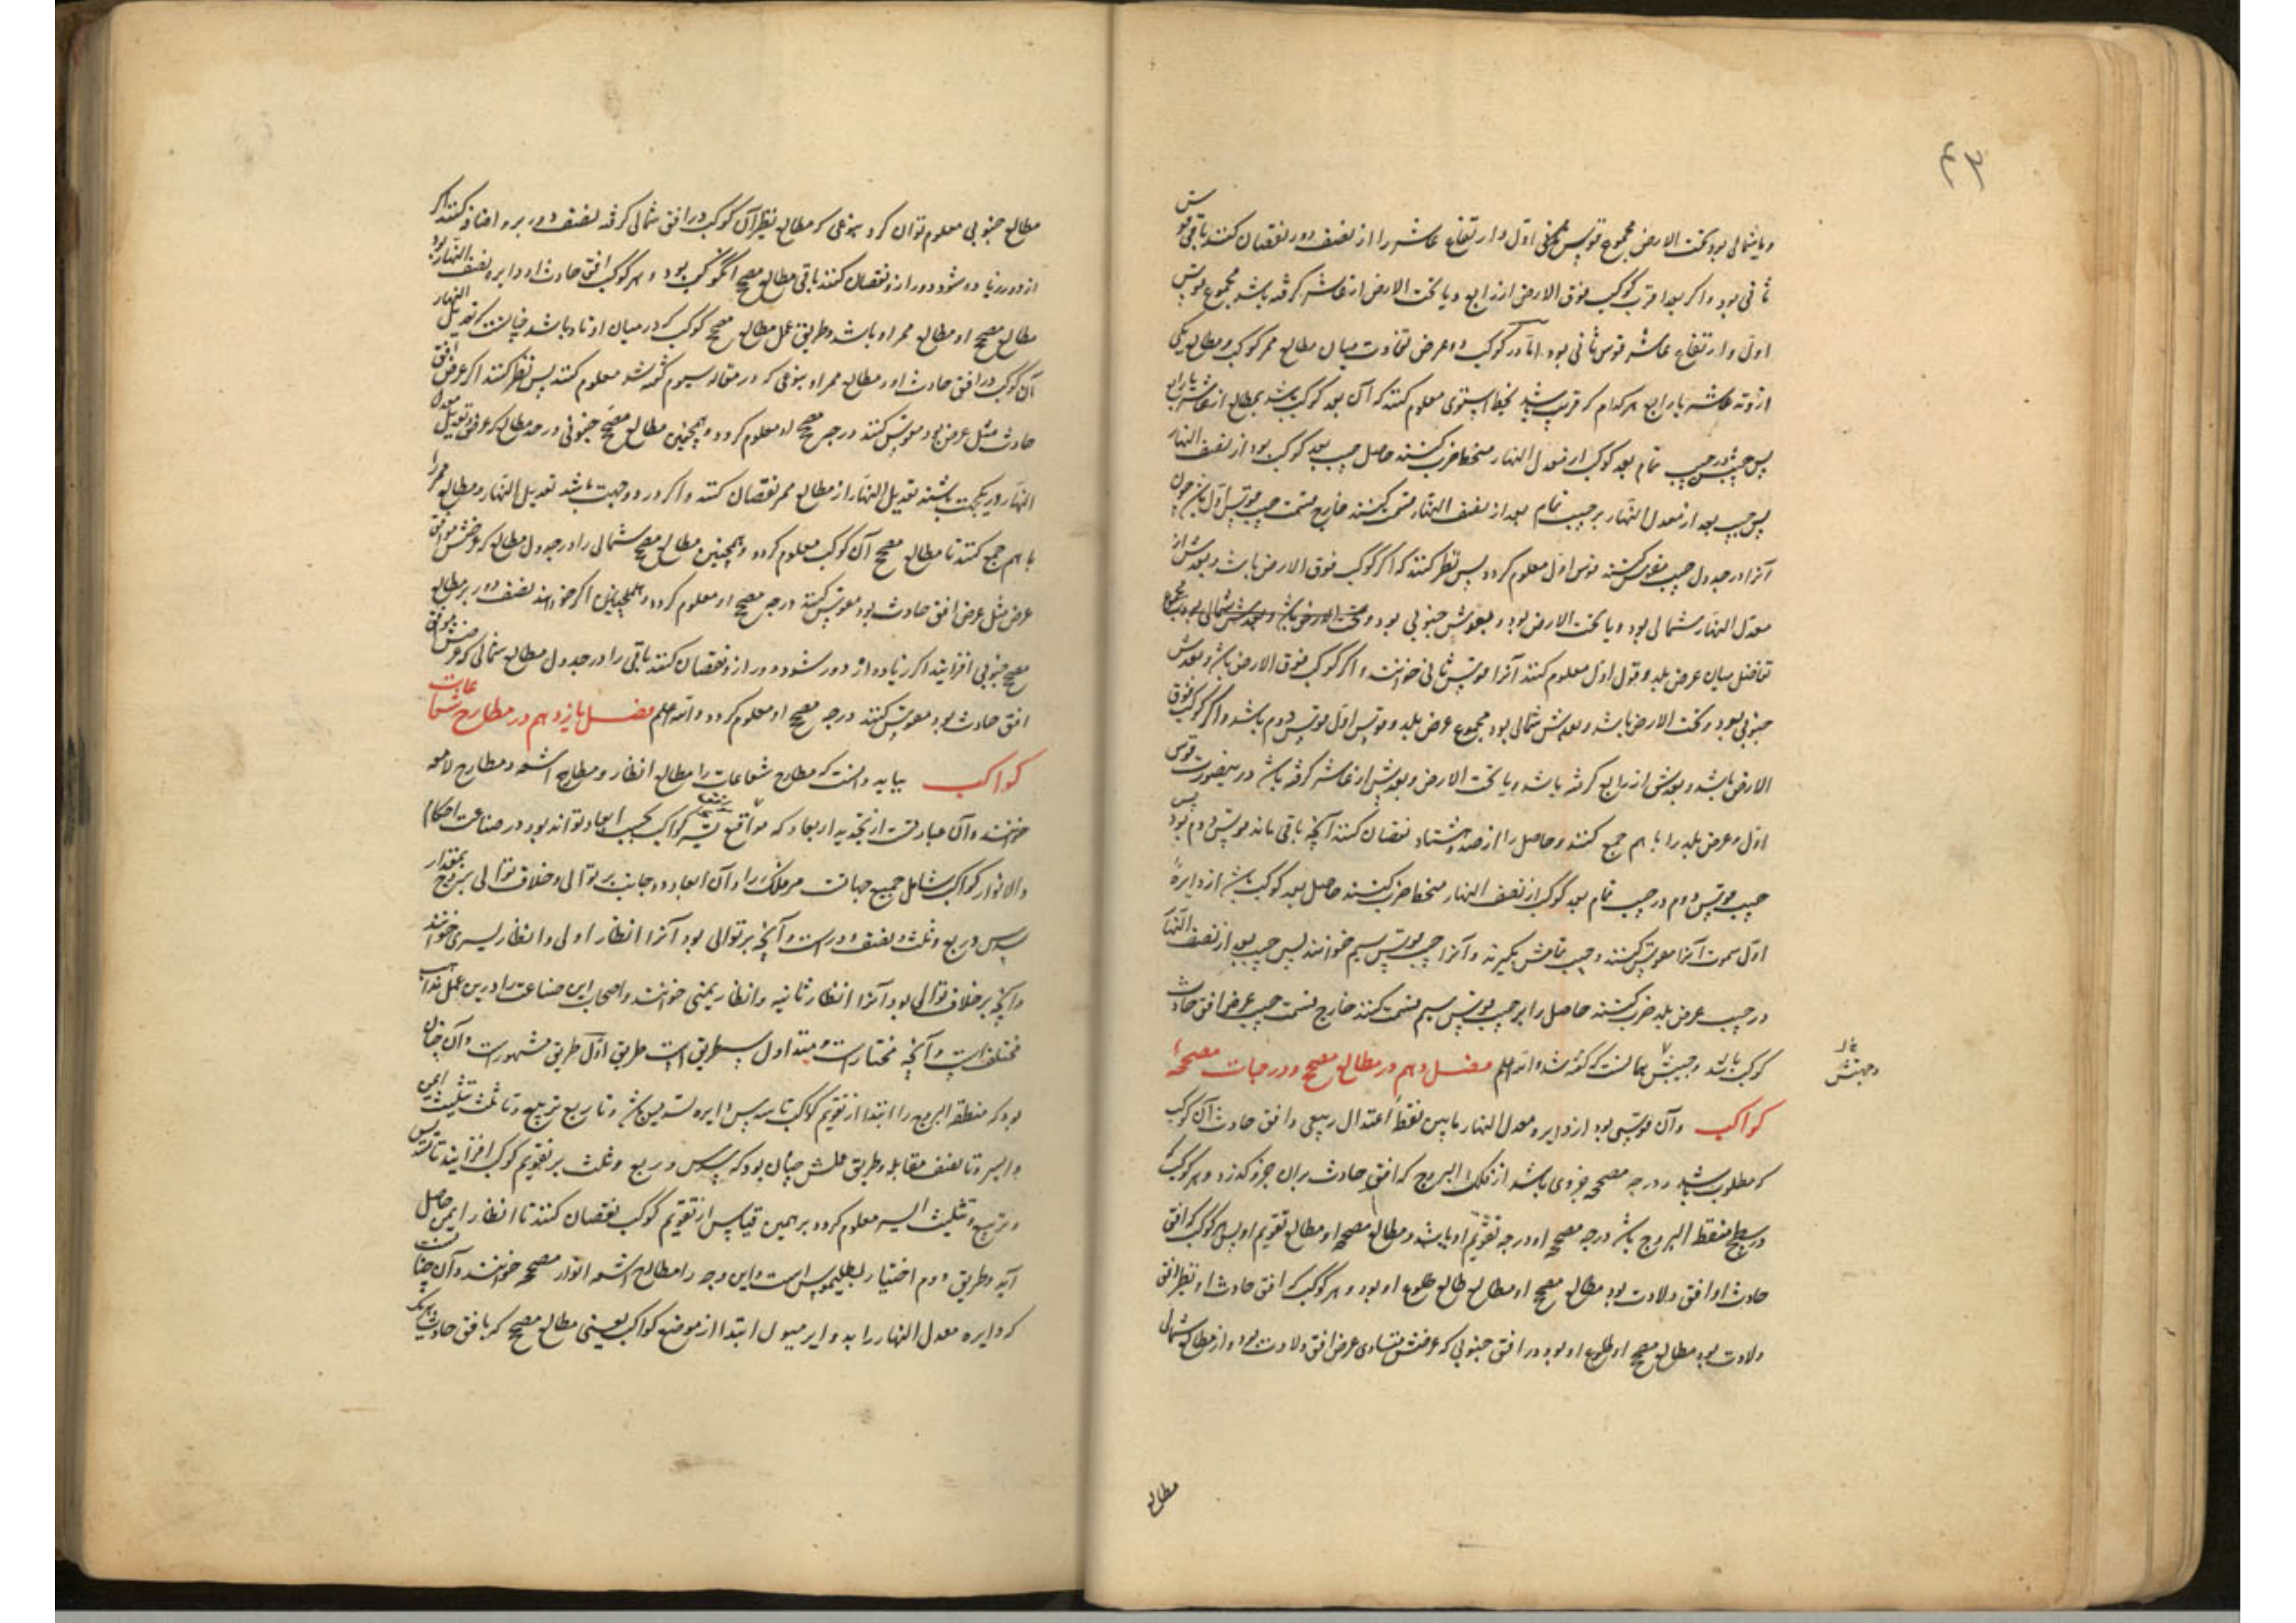 ۴۲
و یا شمالی بود تحت الارض مجموع قوس منحنی اول و ارتفاع عاشر را از نصف دور نقصان کنند باقی قوس
ثانی بود و اگر بعد اقرب کوکب فوق الارض از رابع و یا تحت الارض از عاشر گرفته باشد مجموع قوس
اول و ارتفاع عاشر قوس ثانی بود اما در کوکب ذو عرض تفاوت میان مطالع ممر کوکب و مطالع یکی
از وتد عاشر یا رابع هر کدام که قریب باشد بخط استوی معلوم کنند که آن بعد کوکب باشد بمطالع از عاشر یا رابع
پس جیبش در جیب تمام بعد کوکب از معدل النهار منحطا ضرب کنند حاصل جیب بعد کوکب بود از نصف النهار
پس جیب بعد از معدل النهار بر جیب تمام بعد از نصف النهار قسمت کنند خارج قسمت جیب قوس اول باشد چون
آنرا در جدول جیب مقوس کنند قوس اول معلوم گردد پس نظر کنند که اگر کوکب فوق الارض باشد و بعدش از
معدل النهار شمالی بود و یا تحت الارض بود و بعدش جنوبی بود و تحت الارض باشد و بعدش شمالی بود
تفاضل میان عرض بلد و قوس اول معلوم کنند آنرا قوس ثانی خوانند و اگر کوکب فوق الارض باشد و بعدش
جنوبی بود و تحت الارض باشد و بعدش شمالی بود مجموع عرض بلد و قوس اول قوس دوم باشد و اگر کوکب فوق
الارض باشد و بعدش از رابع گرفته باشد و یا تحت الارض و بعدش از عاشر گرفته باشد درینصورت قوس
اول و عرض بلد را با هم جمع کنند و حاصل را از صد و هشتاد نقصان کنند آنچه باقی ماند قوس دوم بود پس
جیب قوس دوم در جیب تمام بعد کوکب از نصف النهار منحطا ضرب کنند حاصل بعد کوکب باشد از دایرهٔ
اول سموت آنرا مقوس کنند و جیب تمامش بگیرند و آنرا جیب قوس سیم خوانند پس جیب بعد از نصف النهار
در جیب عرض بلد ضرب کنند حاصل را بر جیب قوس سیم قسمت کنند خارج قسمت جیب عرض افق حادث
کوکب باشد و جیبش همانست که گفته شد و الله اعلم فصل دهم در مطالع مصحح و درجات مصححهٔ
وجهتش
کواکب و آن قوسی بود از دایره معدل النهار مابین نقطهٔ اعتدال ربیعی و افق حادث آن کوکب
که مطلوب باشد و درجه مصححه جزوی باشد از فلک البروج که افق حادث بران جزو گذرد و هر کوکب که
در سطح منطقة البروج باشد درجه مصححه او درجه تقویم او باشد و مطالع مصححه او مطالع تقویم او پس هر کوکب که افق
حادث او افق ولادت بود مطالع مصحح او مطالع طالع طلوع او بود و هر کوکب که افق حادث او نظیر افق
ولادت بود مطالع مصحح او طلوع او بود در افق جنوبی که عرضش مساوی عرض افق ولادت بود و از مطالع شمالی
مطالع
مطالع جنوبی معلوم توان کرد بنوعی که مطالع نظیر آن کوکب در افق شمالی گرفته نصف دور برو اضافه کنند اگر
از دور زیاده شود دور ازو نقصان کنند باقی مطالع مصحح آن کوکب بود و هر کوکب که افق حادث او دایره نصف النهار بود
مطالع مصحح او مطالع ممر او باشد و طریق عمل مطالع مصحح کوکب که در میان اوتاد باشد چنانست که تعدیل النهار
آن کوکب در افق حادث او و مطالع ممر او بنوعی که در مقاله سیوم گفته شد معلوم کنند پس نظر کنند اگر عرض افق
حادث مثل عرض بود مقوس کنند درجه مصحح او معلوم گردد و همچنین مطالع مصحح جنوبی در جدول مطالع که عرض تعدیل
النهار در یکجهت باشند تعدیل النهار از مطالع ممر نقصان کنند و اگر در دو جهت باشد تعدیل النهار و مطالع ممر را
با هم جمع کنند تا مطالع مصحح آن کوکب معلوم گردد و همچنین مطالع مصحح شمالی را در جدول مطالع که عرضش موافق
عرض مثل عرض افق حادث بود مقوس کنند درجه مصحح او معلوم گردد و همچنین اگر خواهند نصف دور بر مطالع
مصحح جنوبی افزایند اگر زیاده از دور شود دور ازو نقصان کنند باقی را در جدول مطالع شمالی که عرضش موافق
افق حادث بود مقوس کنند درجه مصحح او معلوم گردد و الله اعلم فصل یازدهم در مطارح شعاعات
کواکب بباید دانست که مطارح شعاعات را مطالع انظار و مطارح اشعه و مطارح لامعه
خوانند و آن عبارتست از تحدید ابعاد که مواقع اشعه کواکب بحسب ابعاد تواند بود در صناعت احکام
و الانوار کواکب شامل جمیع جهات مر فلک را و آن ابعاد در جانب بر توالی و خلاف توالی بروج بمقدار
سدس و ربع و ثلث و نصف دورست و آنچه بر توالی بود آنرا انظار اولی و انظار یسری خوانند
و آنچه بر خلاف توالی بود آنرا انظار ثانیه و انظار یمنی خوانند و اصحاب این صناعت را درین عمل مذاهب
مختلف است و آنچه مختارست و متداول سه طریق است طریق اول طریق مشهورست و آن چنان
بود که منطقة البروج را ابتدا از تقویم کوکب تا سدس دایره تسدیس باشد و تا ربع تربیع و تا ثلث تثلیث ایمن
و ایسر و تا نصف مقابله و طریق عملش چنان بود که سدس و ربع و ثلث بر تقویم کوکب افزایند تا تسدیس
و تربیع و تثلیث ایسر معلوم گردد و برهمین قیاس از تقویم کوکب نقصان کنند تا انظار ایمن حاصل
آید و طریق دوم اختیار بطلیموس است و این وجه را مطالع اشعه انوار مصحح خوانند و آن چنانست
که دایره معدل النهار را بدوایر میول ابتدا از موضع کواکب یعنی مطالع مصحح که بافق حادث هر یک